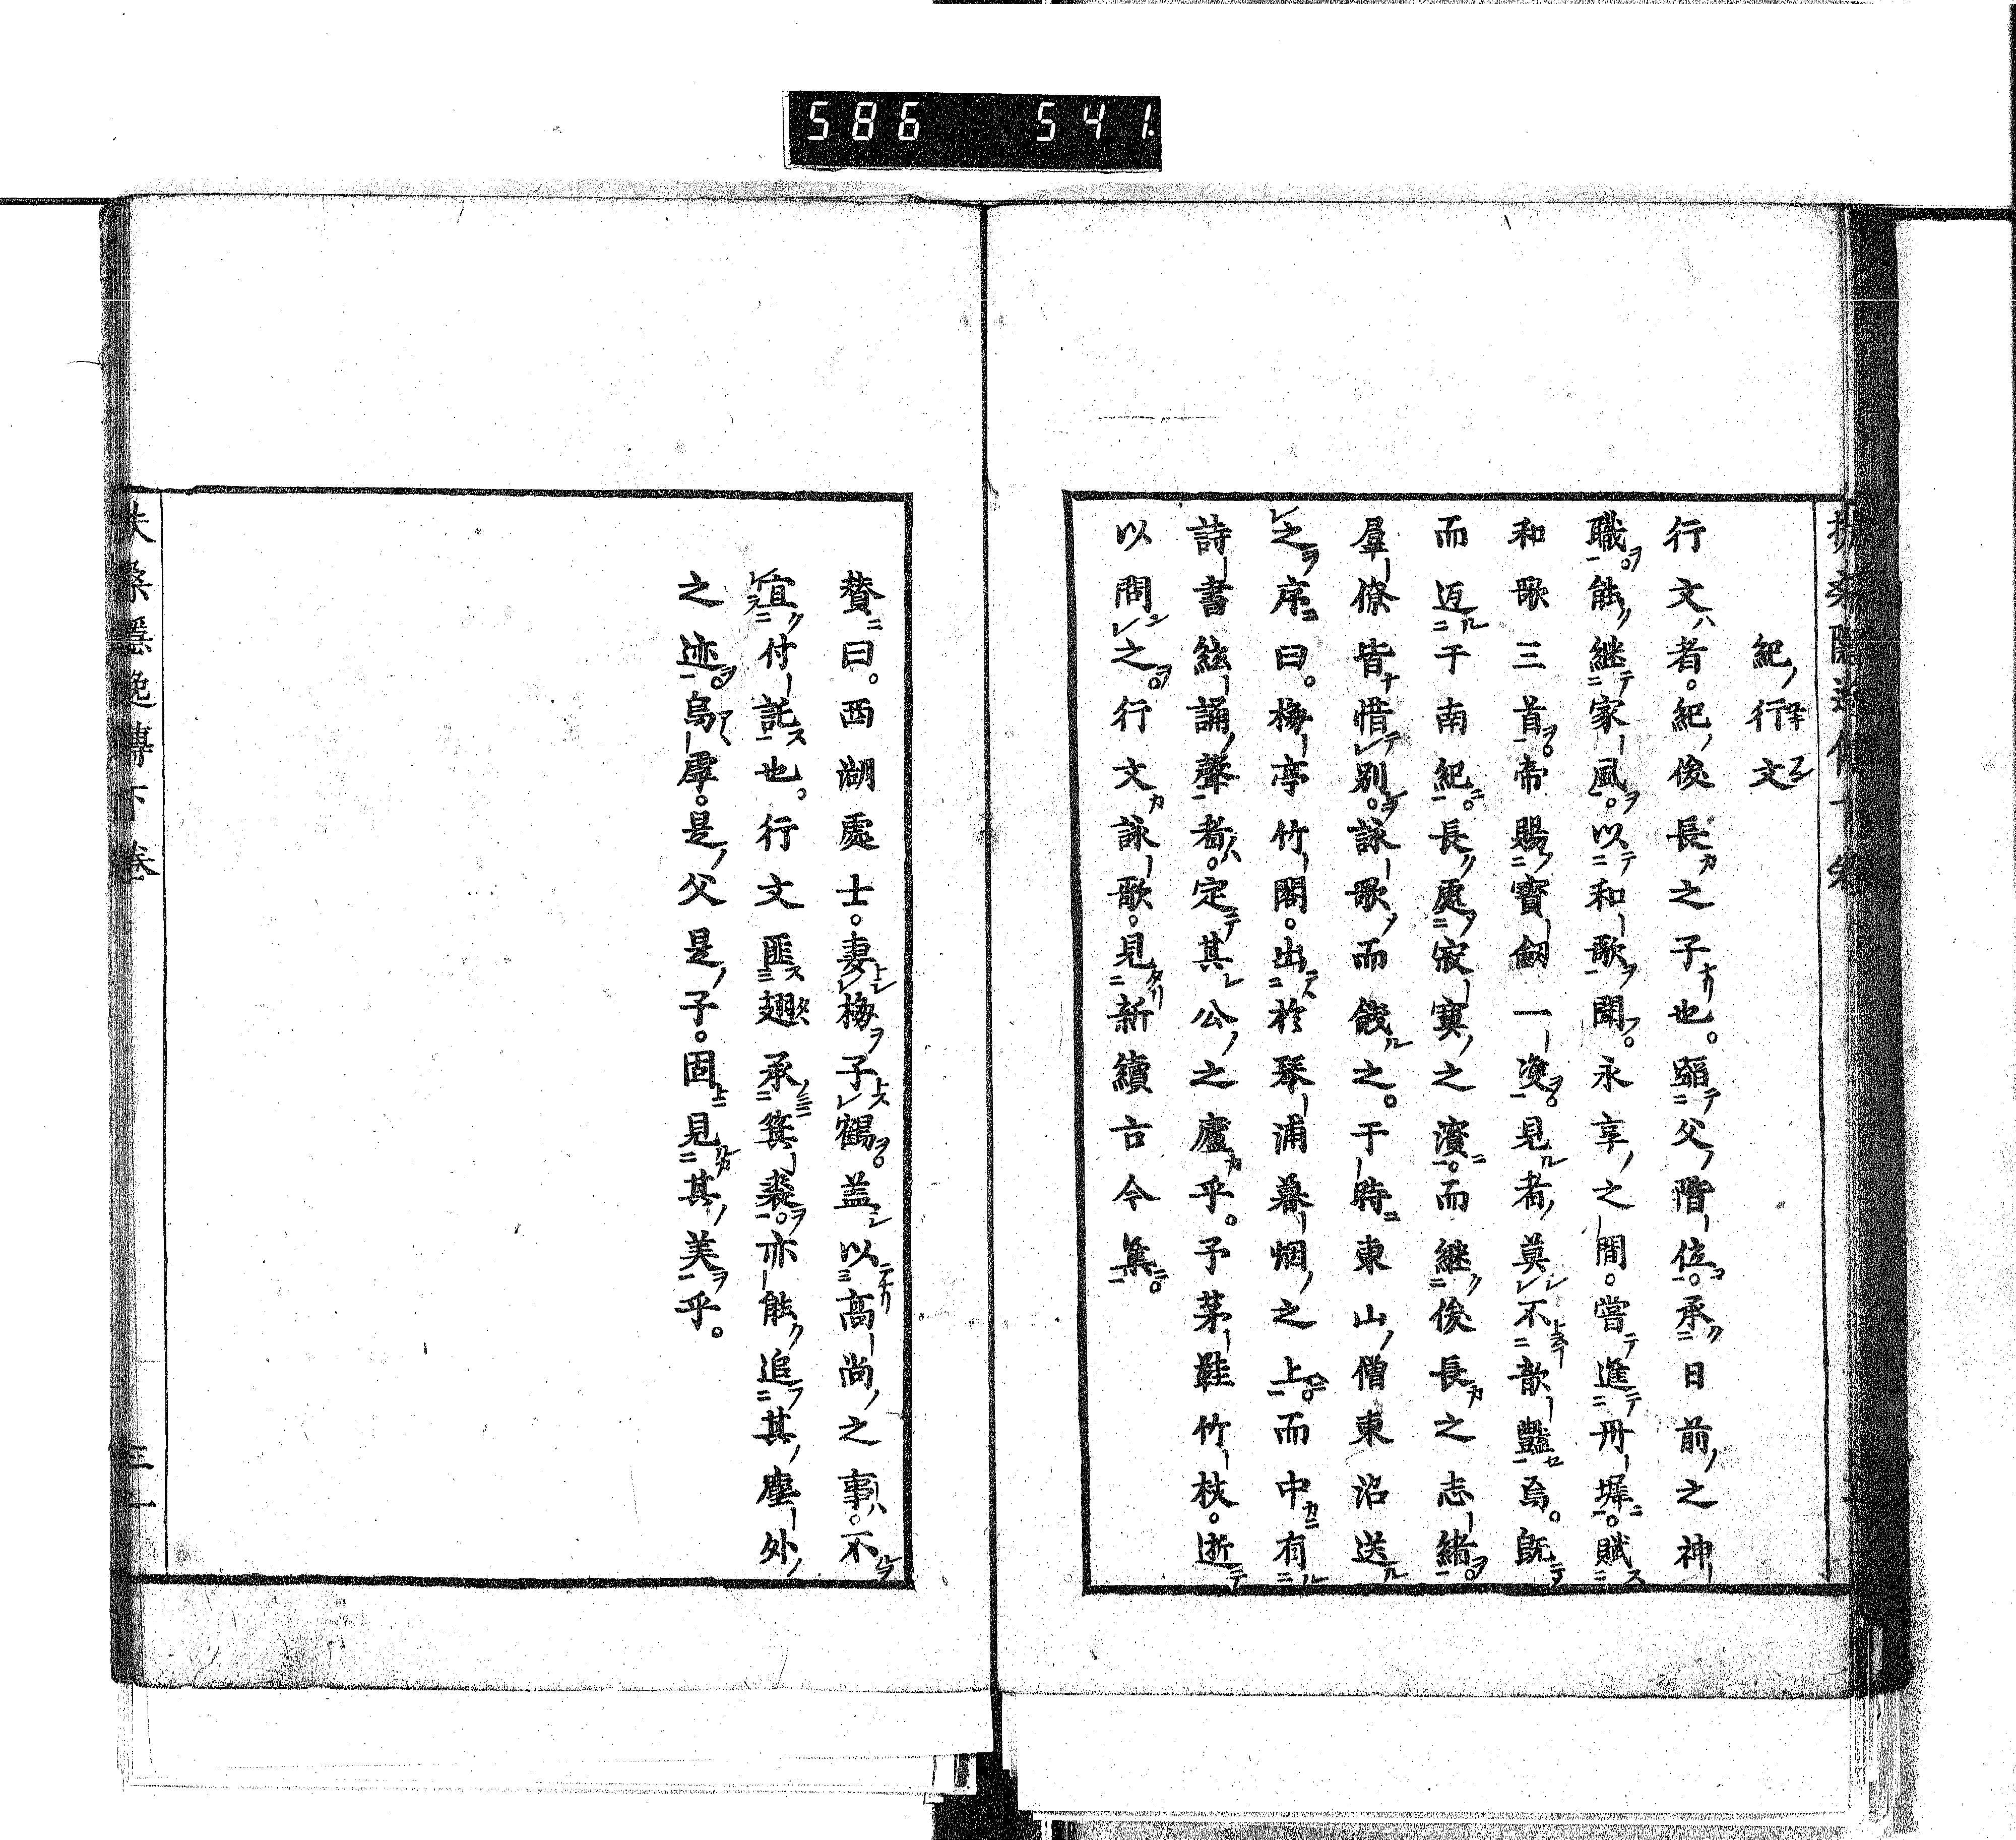 586 541
紀行文
行文者。紀俊長之子也。躡父階位。承日前之神
職。能継家風。以和歌聞。永享之間。嘗進丹墀。賦
和歌三首。帝賜寳劔一凌。見者莫不歆豔焉。既
而返于南紀。長處寂寞之濱。而継俊長之志緒。
羣僚皆惜別。詠歌而餞之。于時東山僧東沼送
之序曰。梅亭竹閣。出於琴浦暮烟之上。而中有
詩書絃誦聲者。定其公之廬乎。予茅鞋竹杖。逝
以問之。行文詠歌。見新續古今集。
賛曰。西湖處士。妻梅子鶴。盖以高尚之事。不
宜付託也。行文匪翅承箕裘。亦能追其塵外
之迹。烏虖。是父是子。固見其美乎。
扶桑隱逸傳下卷
三一